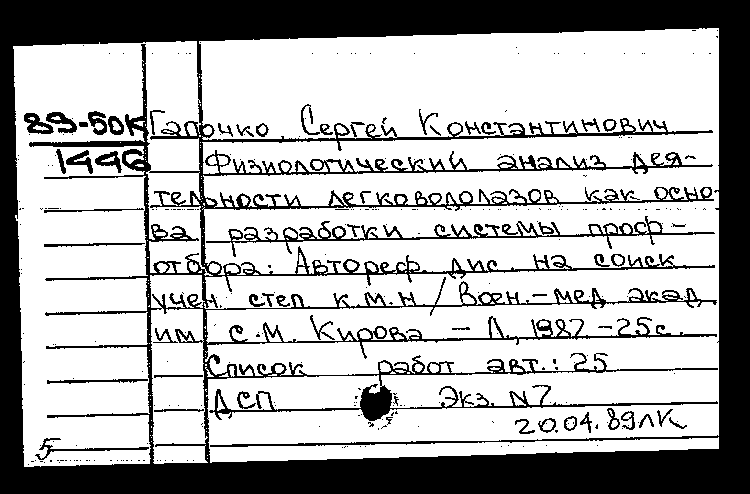 89-50к Гапочко, Сергей Константинович
1446 Физиологический анализ дея-
тельности легководолазов как осно-
ва разработки системы проф-
отбора: Автореф. дис. на соиск.
учен. степ. к.м.н. / Воен.-мед. акад.
им. С.М. Кирова. - Л., 1987 - 25с.
Список работ авт.: 25
ДСП Экз. N7
20.04.89ЛК
5